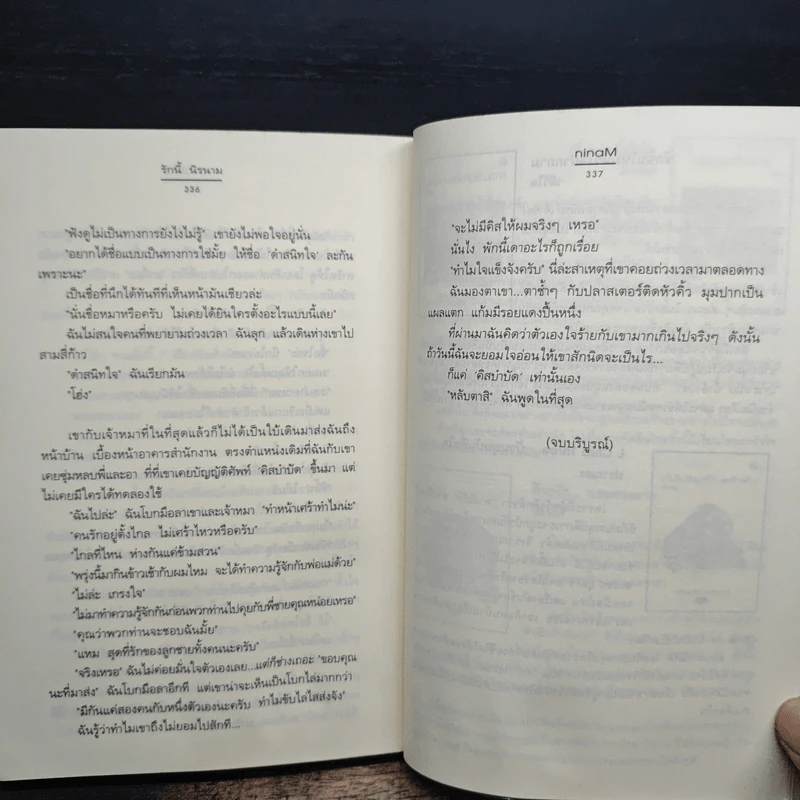 รักนี้ นิรนาม
336
"ฟังดูไม่เป็นทางการยังไงไม่รู้" เขายังไม่พอใจอยู่นั่น
"อยากได้ชื่อแบบเป็นทางการใช่มั้ย ให้ชื่อ 'ดำสนิทใจ' ละกัน
เพราะนะ"
เป็นชื่อที่นึกได้ทันทีที่เห็นหน้ามันเชียวล่ะ
"นั่นชื่อหมาหรือครับ ไม่เคยได้ยินใครตั้งอะไรแบบนี้เลย"
ฉันไม่สนใจคนที่พยายามถ่วงเวลา ฉันลุก แล้วเดินห่างเขาไป
สามสี่ก้าว
"ดำสนิทใจ" ฉันเรียกมัน
"โฮ่ง"
เขากับเจ้าหมาที่ในที่สุดแล้วก็ไม่ได้เป็นใบ้เดินมาส่งฉันถึง
หน้าบ้าน เบื้องหน้าอาคารสำนักงาน ตรงตำแหน่งเดิมที่ฉันกับเขา
เคยซุ่มหลบพี่และอา ที่ที่เขาเคยบัญญัติศัพท์ 'คิสบำบัด' ขึ้นมา แต่
ไม่เคยมีใครได้ทดลองใช้
"ฉันไปล่ะ" ฉันโบกมือลาเขาและเจ้าหมา "ทำหน้าเศร้าทำไมน่ะ"
"คนรักอยู่ตั้งไกล ไม่เศร้าไหวหรือครับ"
"ไกลที่ไหน ห่างกันแค่ข้ามสวน"
"พรุ่งนี้มากินข้าวเช้ากับผมไหม จะได้ทำความรู้จักกับพ่อแม่ด้วย"
"ไม่ล่ะ เกรงใจ"
"ไม่มาทำความรู้จักกันก่อนพวกท่านไปคุยกับพี่ชายคุณหน่อยเหรอ"
"คุณว่าพวกท่านจะชอบฉันมั้ย"
"แหม สุดที่รักของลูกชายทั้งคนนะครับ"
"จริงเหรอ" ฉันไม่ค่อยมั่นใจตัวเองเลย...แต่ก็ช่างเถอะ "ขอบคุณ
นะที่มาส่ง" ฉันโบกมือลาอีกที แต่เขาน่าจะเห็นเป็นโบกไล่มากกว่า
"มีกันแค่สองคนกับหนึ่งตัวเองนะครับ ทำไมขับไล่ไสส่งจัง"
ฉันรู้ว่าทำไมเขาถึงไม่ยอมไปสักที...
Manin
337
"จะไม่มีคิสให้ผมจริงๆ เหรอ"
นั่นไง พักนี้เดาอะไรก็ถูกเรื่อย
"ทำไมใจแข็งจังครับ" นี่ล่ะสาเหตุที่เขาคอยถ่วงเวลามาตลอดทาง
ฉันมองตาเขา...ตาช้ำๆ กับปลาสเตอร์ติดหัวคิ้ว มุมปากเป็น
แผลแตก แก้มมีรอยแดงปื้นหนึ่ง
ที่ผ่านมาฉันคิดว่าตัวเองใจร้ายกับเขามากเกินไปจริงๆ ดังนั้น
ถ้าวันนี้ฉันจะยอมใจอ่อนให้เขาสักนิดจะเป็นไร...
ก็แค่ 'คิสบำบัด' เท่านั้นเอง
"หลับตาสิ" ฉันพูดในที่สุด
(จบบริบูรณ์)